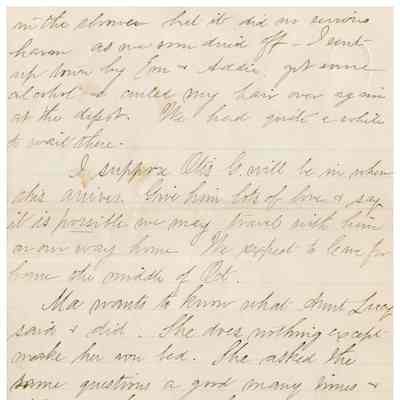 in the shower but it did no serious
harm as we soon dried off - I sent
up town by Em & Addie, got some
alcohol & curled my hair over again
at the depot. We had quite a while
to wait there.
I suppose Otis G. will be in when
this arrives. Give him lots of love & say
it is possible we may travel with him
on our way home. We expect to leave for
home the middle of Oct.
Ma wants to know what Aunt Lucy
said & did. She does nothing except
make her own bed. She asked the
same questions a good many times &